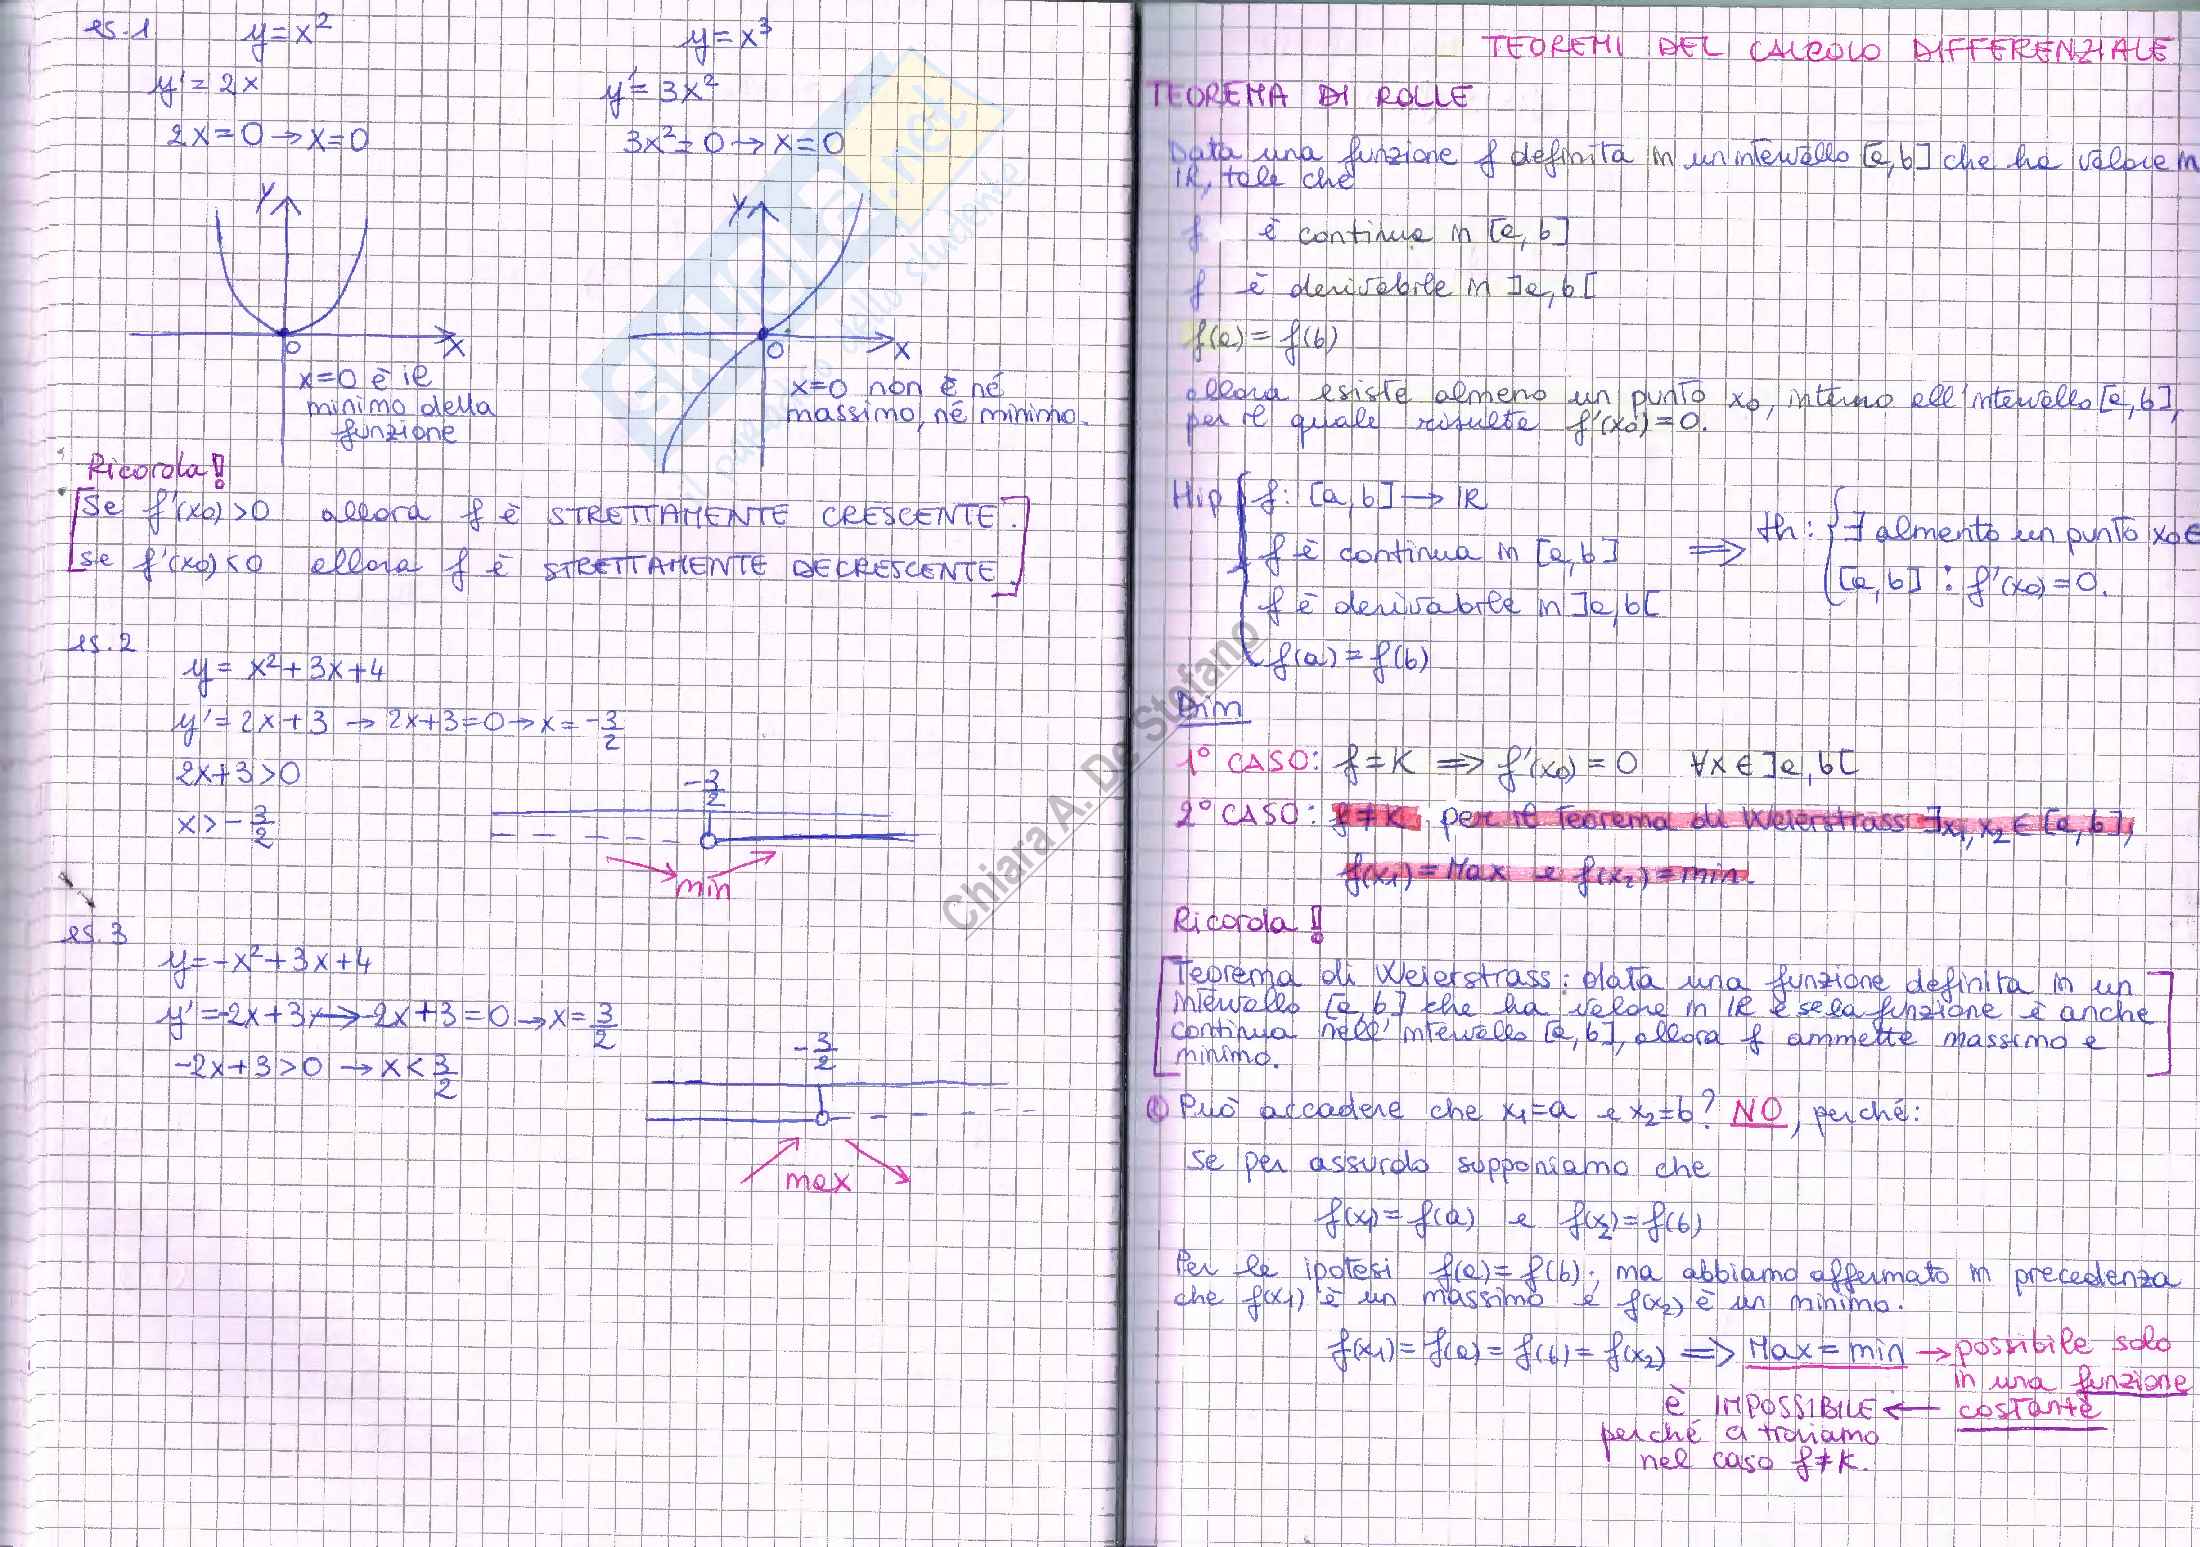 es.1
y = x²
y' = 2x
2x = 0 → x = 0
Y
O
X
x=0 è il
minimo della
funzione
y = x³
y' = 3x²
3x² = 0 → x = 0
Y
O
X
x=0 non è né
massimo, né minimo.
Ricorda!
Se f'(x₀) > 0 allora f è STRETTAMENTE CRESCENTE.
se f'(x₀) < 0 allora f è STRETTAMENTE DECRESCENTE.
es.2
y = x² + 3x + 4
y' = 2x + 3 → 2x + 3 = 0 → x = -3/2
2x + 3 > 0
x > -3/2
-3/2
min
es.3
y = -x² + 3x + 4
y' = -2x + 3 → -2x + 3 = 0 → x = 3/2
-2x + 3 > 0 → x < 3/2
-3/2
max
TEOREMI DEL CALCOLO DIFFERENZIALE
TEOREMA DI ROLLE
Data una funzione f definita in un intervallo [a,b] che ha valore in
IR, tale che
f è continua in [a,b]
f è derivabile in ]a,b[
f(a) = f(b)
allora esiste almeno un punto x₀, interno all'intervallo [a,b],
per il quale risulta f'(x₀) = 0.
Hip f: [a,b] → IR
f è continua in [a,b]
f è derivabile in ]a,b[
f(a) = f(b)
⇒ th: ∃ almento un punto x₀ ∈
[a,b] : f'(x₀) = 0.
Dim
1° CASO: f = K ⇒ f'(x₀) = 0 ∀x ∈ ]a,b[
2° CASO: f ≠ K, per il Teorema di Weierstrass ∃x₁,x₂ ∈ [a,b],
f(x₁) = Max e f(x₂) = min.
Ricorda!
Teorema di Weierstrass: data una funzione definita in un
intervallo [a,b] che ha valore in IR e se la funzione è anche
continua nell'intervallo [a,b], allora f ammette massimo e
minimo.
Può accadere che x₁=a e x₂=b? NO, perché:
Se per assurdo supponiamo che
f(x₁) = f(a) e f(x₂) = f(b)
Per le ipotesi f(a) = f(b); ma abbiamo affermato in precedenza
che f(x₁) è un massimo e f(x₂) è un minimo.
f(x₁) = f(a) = f(b) = f(x₂) ⇒ Max = min → possibile solo
in una funzione
costante
è IMPOSSIBILE ←
perché ci troviamo
nel caso f≠K.
Chiara A. De Stefano
.net
dello studente